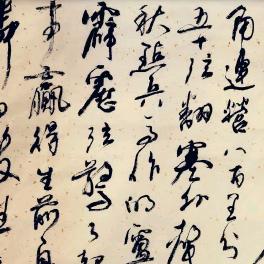 角連營八百里分
五十弦翻塞外聲
秋點兵馬作的盧
霹靂弦驚了却
事贏得生前身